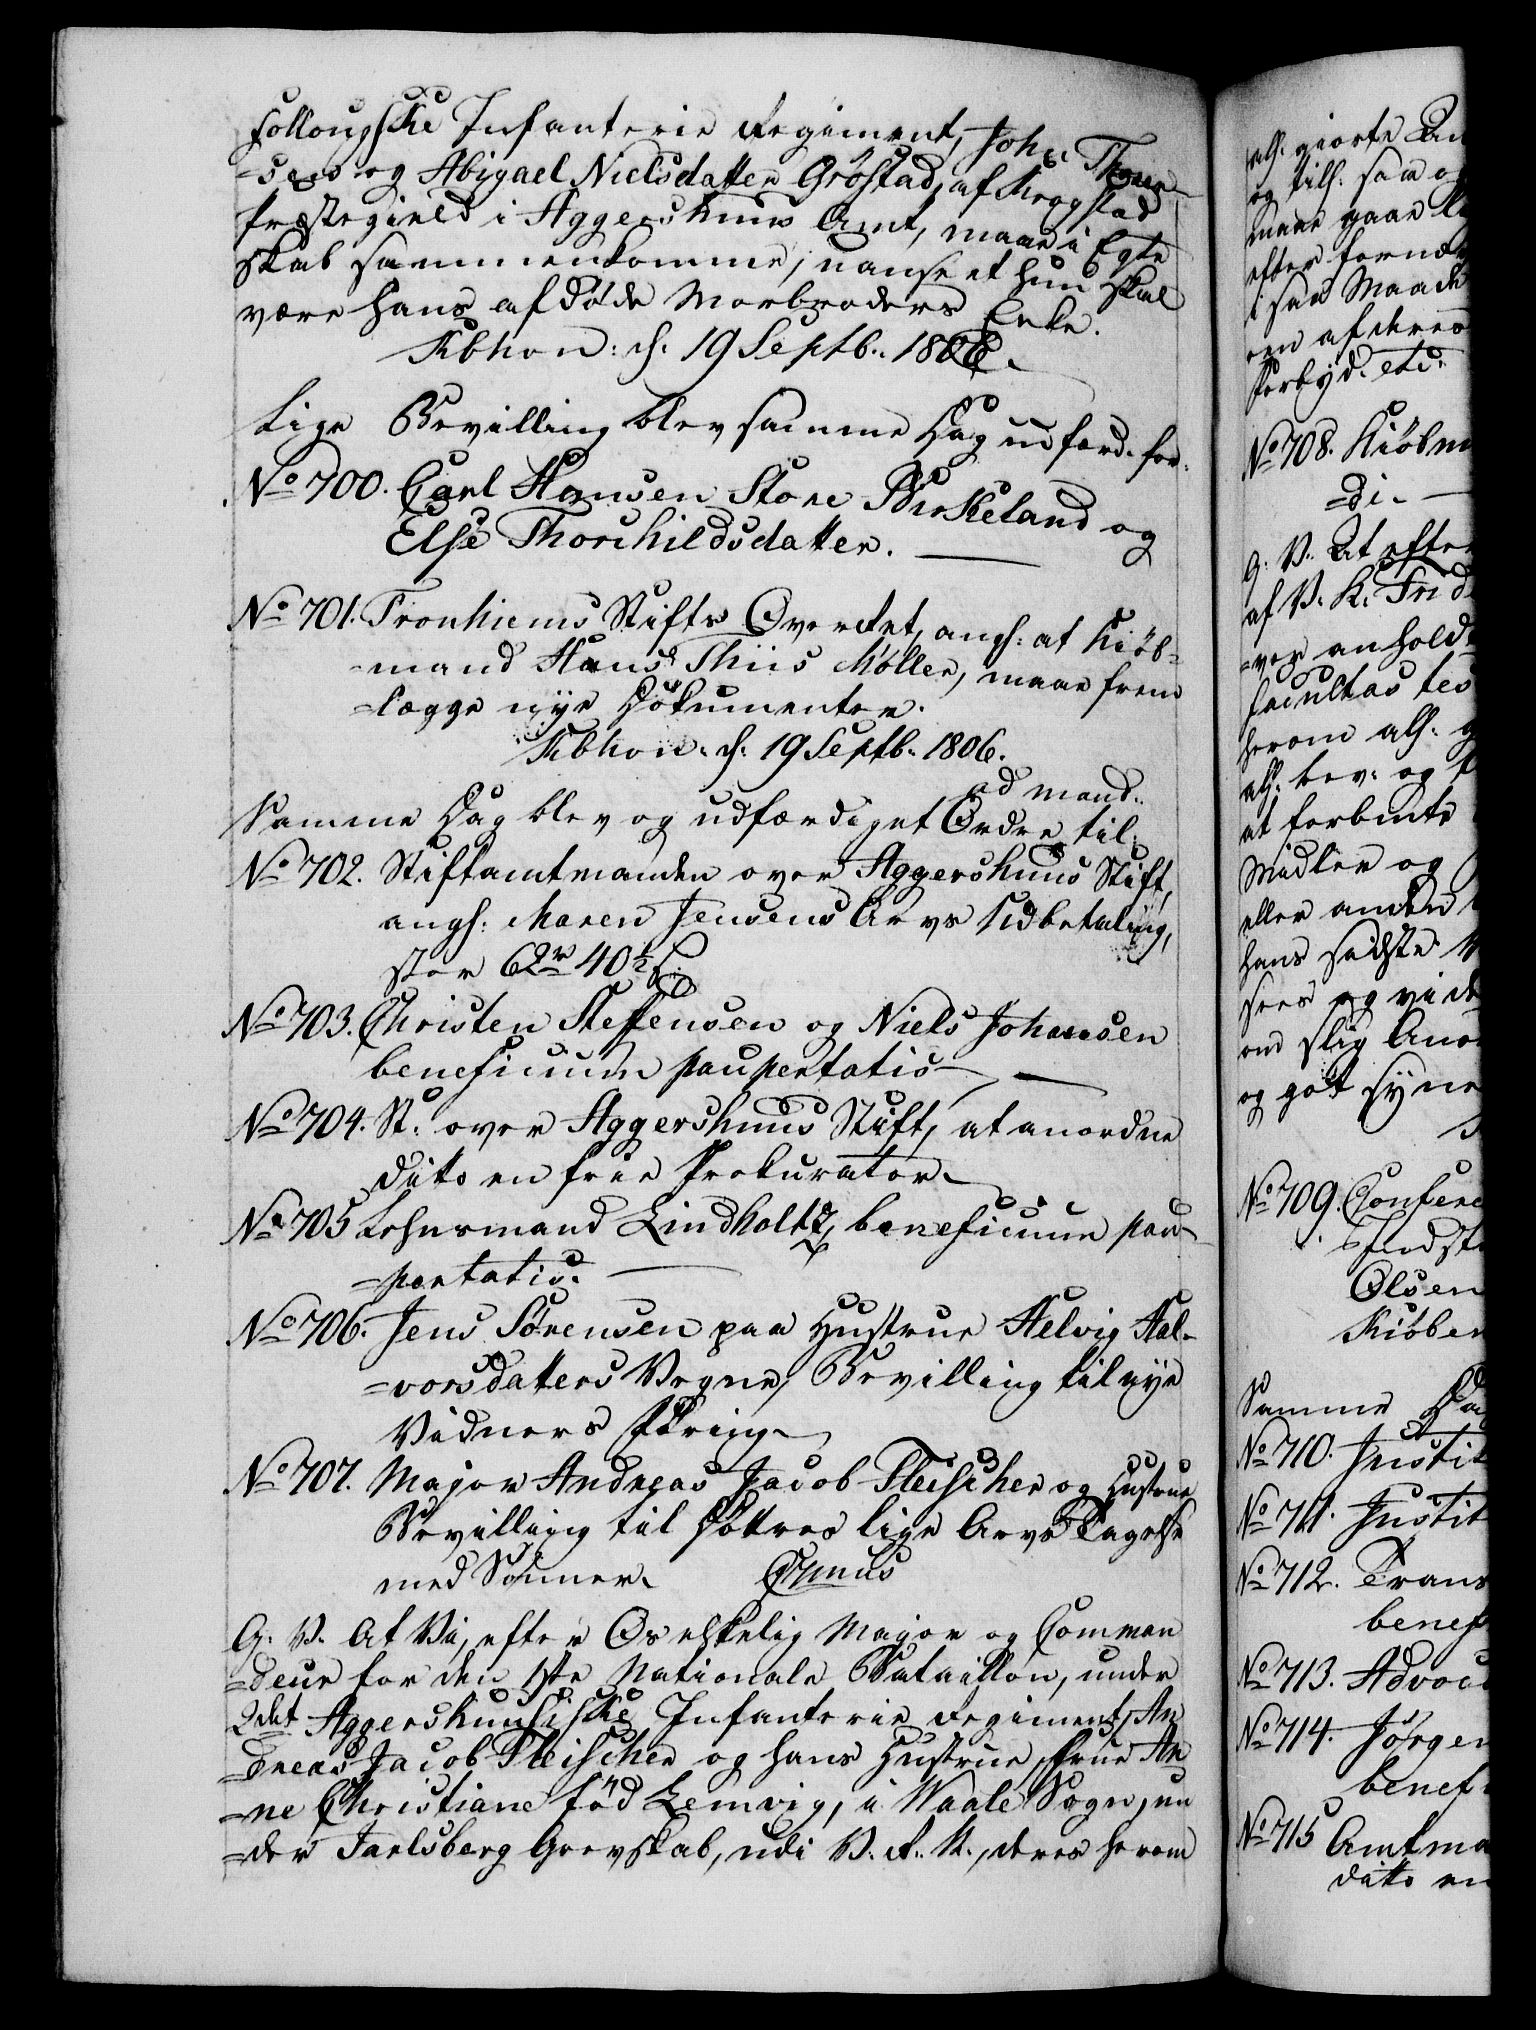 Follougske Infanterie Regiment, John Thoresen
=sen og Abigael Nielsdatter Gröstad, af Krogstad
Præstegield i Aggershuus Amt, maae i Egte
skab sammenkomme, uanseet hun skal
være hans afdøde Morbroders Enke.
Kbhvn: d: 19 Septb: 1806.
Lige Bevilling blev samme Dag udfærd. for
No 700. Carl Hansen Store Birkeland og
Else Thorchildsdatter.
No 701. Tronhiems Stifts Overret, angl: at Kiöb=
=mand Hans Thiis Möller, maae frem
=lægge nye Dokumenter.
Kbhvn: d: 19 Septb. 1806.
ad mand:
Samme Dag blev og udfærdiget Ordre til:
No 702. Stiftamtmanden over Aggershuus Stift,
angl: Maren Jensens Arvs Udbetaling,
stor 62 rd 40 1/2 ß
No 703. Christen Steffensen og Niels Johansen
beneficium paupertatis
No 704. St: over Aggershuus Stift, at anordne
dito en frie Prokurator
No 705 Lehnsmand Lindholtz, beneficium pau
=pertatis.
No 706. Jens Sörensen paa Hustrue Helvig Hal=
=vorsdatters Vegne, Bevilling til nye
Vidners Föring
No 707. Major Andreas Jacob Fleischer og Hustrue
Bevilling til Döttres lige Arvs Tagelse
med Sönner.
G. V. At Vi, efter Os elskelig Major og Comman
=deur for den 1ste Nationale Bataillon, under
2det Aggershuusiske Infanterie Regiment, An
=dreas Jacob Fleischer og hans Hustrue, Frue An
=ne Christiane fød Lemvig, i Waale Sogn, un
=der Jarlsberg Grevskab, udi V. R. N., deres herom
all: giorte An
og till: som o
maae gaae
efter fornæ
i saa Maade
en af deres
Forbyd. etc.
No 708. Kiöbm
=di
G. V. At efter
af V. K. Frid
=ver anhold
facultas tes
herom all: g
all: bev: og
at forbmte
Midler og
eller anden
hans sidste
sees og vide
om slig Anor
og got syne
No 709. Confere
Olsen
Kiöben
Samme Da
No 710. Justit
No 711. Justit
No 712. Trans
benef
No 713. Advoc
No 714. Jörgen
benef
No 715 Amtma
dito en